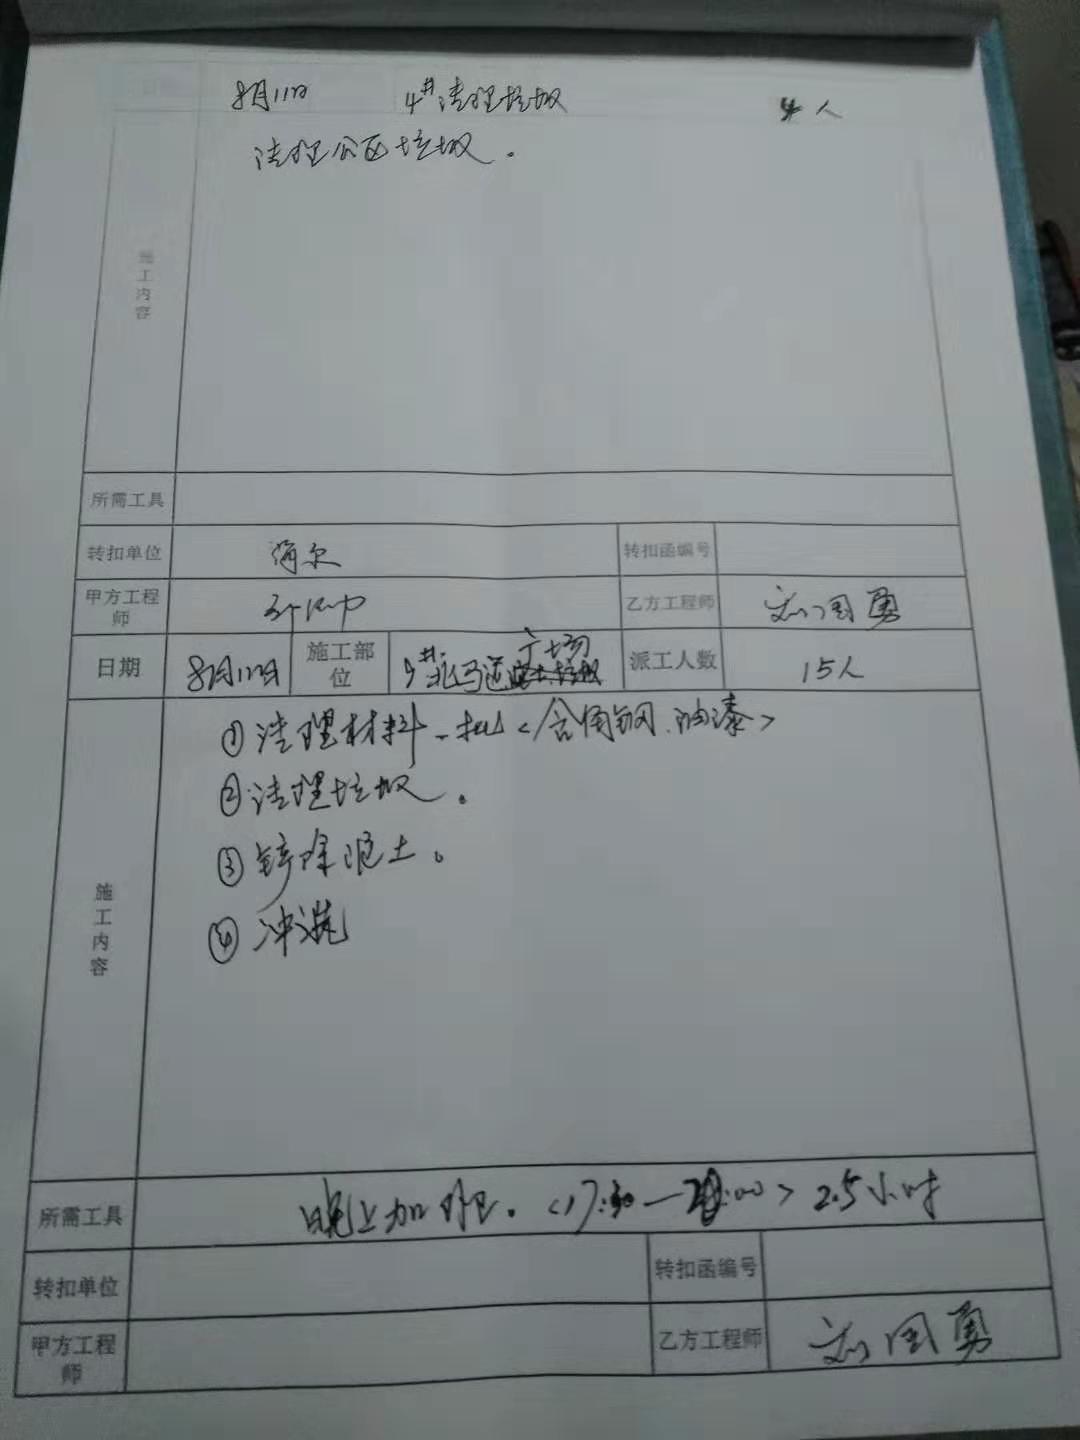 8月11日 4#清理垃圾 4人
清理公区垃圾。
施工内容
所需工具
转扣单位 海尔 转扣函编号
甲方工程师 乙方工程师 刘国勇
日期 8月12日 施工部位 广场 派工人数 15人
①清理材料一批<含角钢.油漆>
②清理垃圾。
③铲除泥土。
④冲洗
施工内容
所需工具 晚上加班。<17:30—20:00> 2.5小时
转扣单位 转扣函编号
甲方工程师 乙方工程师 刘国勇